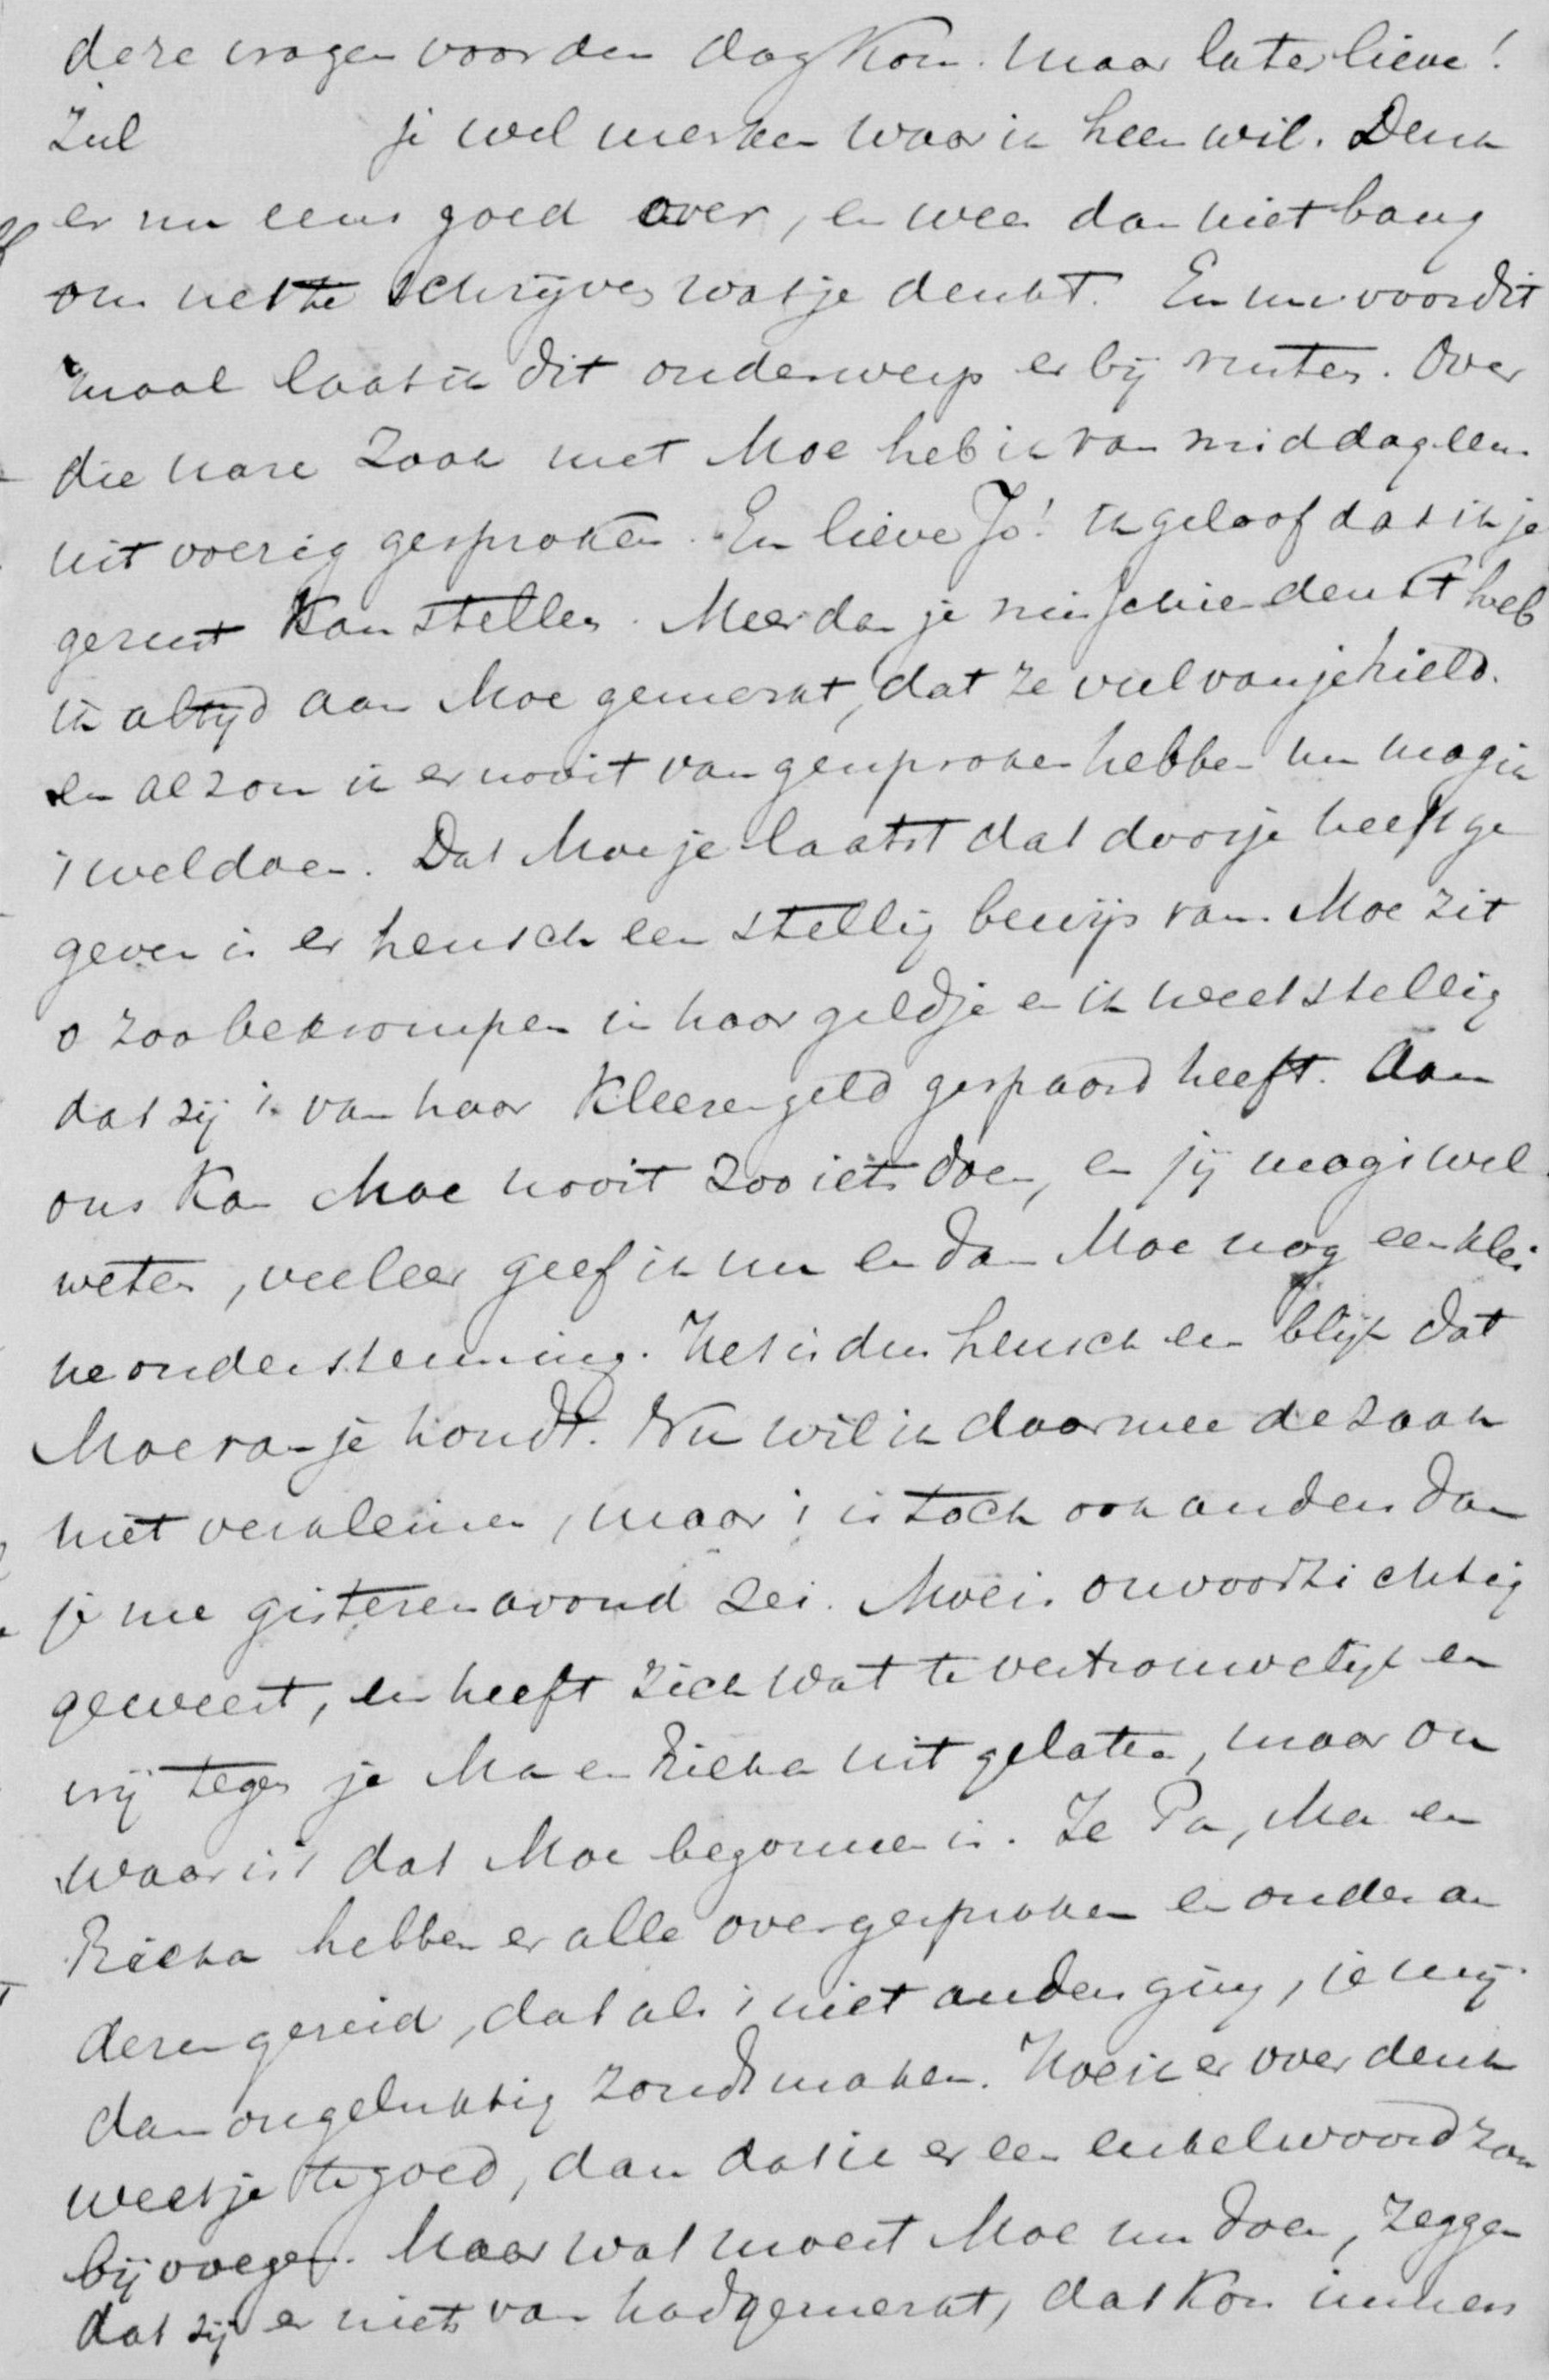 deze vragen voor den dag kom. Maar later lieve!
Zul je wel merken waar ik heen wil. Denk
er nu eens goed over, en wees dan niet bang
om net te schrijven wat je denkt. En nu voor dit
maal laat ik dit onderwerp er bij rusten. Over
die nare zaak met Moe heb ik van middag eens
uitvoerig gesproken. En lieve Jo! ik geloof dat ik je
gerust kan stellen. Meer dan je misschien denkt heb
ik altijd aan Moe gemerkt, dat ze veel van je hield.
en al zou ik er nooit van gesproken hebben nu mag ik
't wel doen. Dat Moe je laatst dat doosje heeft ge
geven is er heusch een stellig bewijs van. Moe zit
o zoo bekrompen in haar geldje en ik weet stellig
dat zij 't van haar kleerengeld gespaard heeft. Aan
ons kan Moe nooit zoo iets doen, en jij mag 't wel
weten, veeleer geef ik nu en dan Moe nog een klei
ne ondersteuning. Het is dus heusch een blijk dat
Moe van je houdt. Nu wil ik daarmee de zaak
niet verkleinen, maar 't is toch ook anders dan
je me gisterenavond zei. Moe is onvoorzichtig
geweest, en heeft zich wat te vertrouwelijk en
vrij tegen je Ma en Rieka uitgelaten, maar on
waar is 't dat Moe begonnen is. Je Pa, Ma en
Rieka hebben er alle over gesproken en onder an
deren gezeid, dat als 't niet anders ging, je mij
dan ongelukkig zoudt maken. Hoe ik er over denk
weet je te goed, dan dat ik er een enkel woord zou
bijvoegen. Maar wat moest Moe nu doen, zeggen
dat zij er niets van had gemerkt, dat kon immers